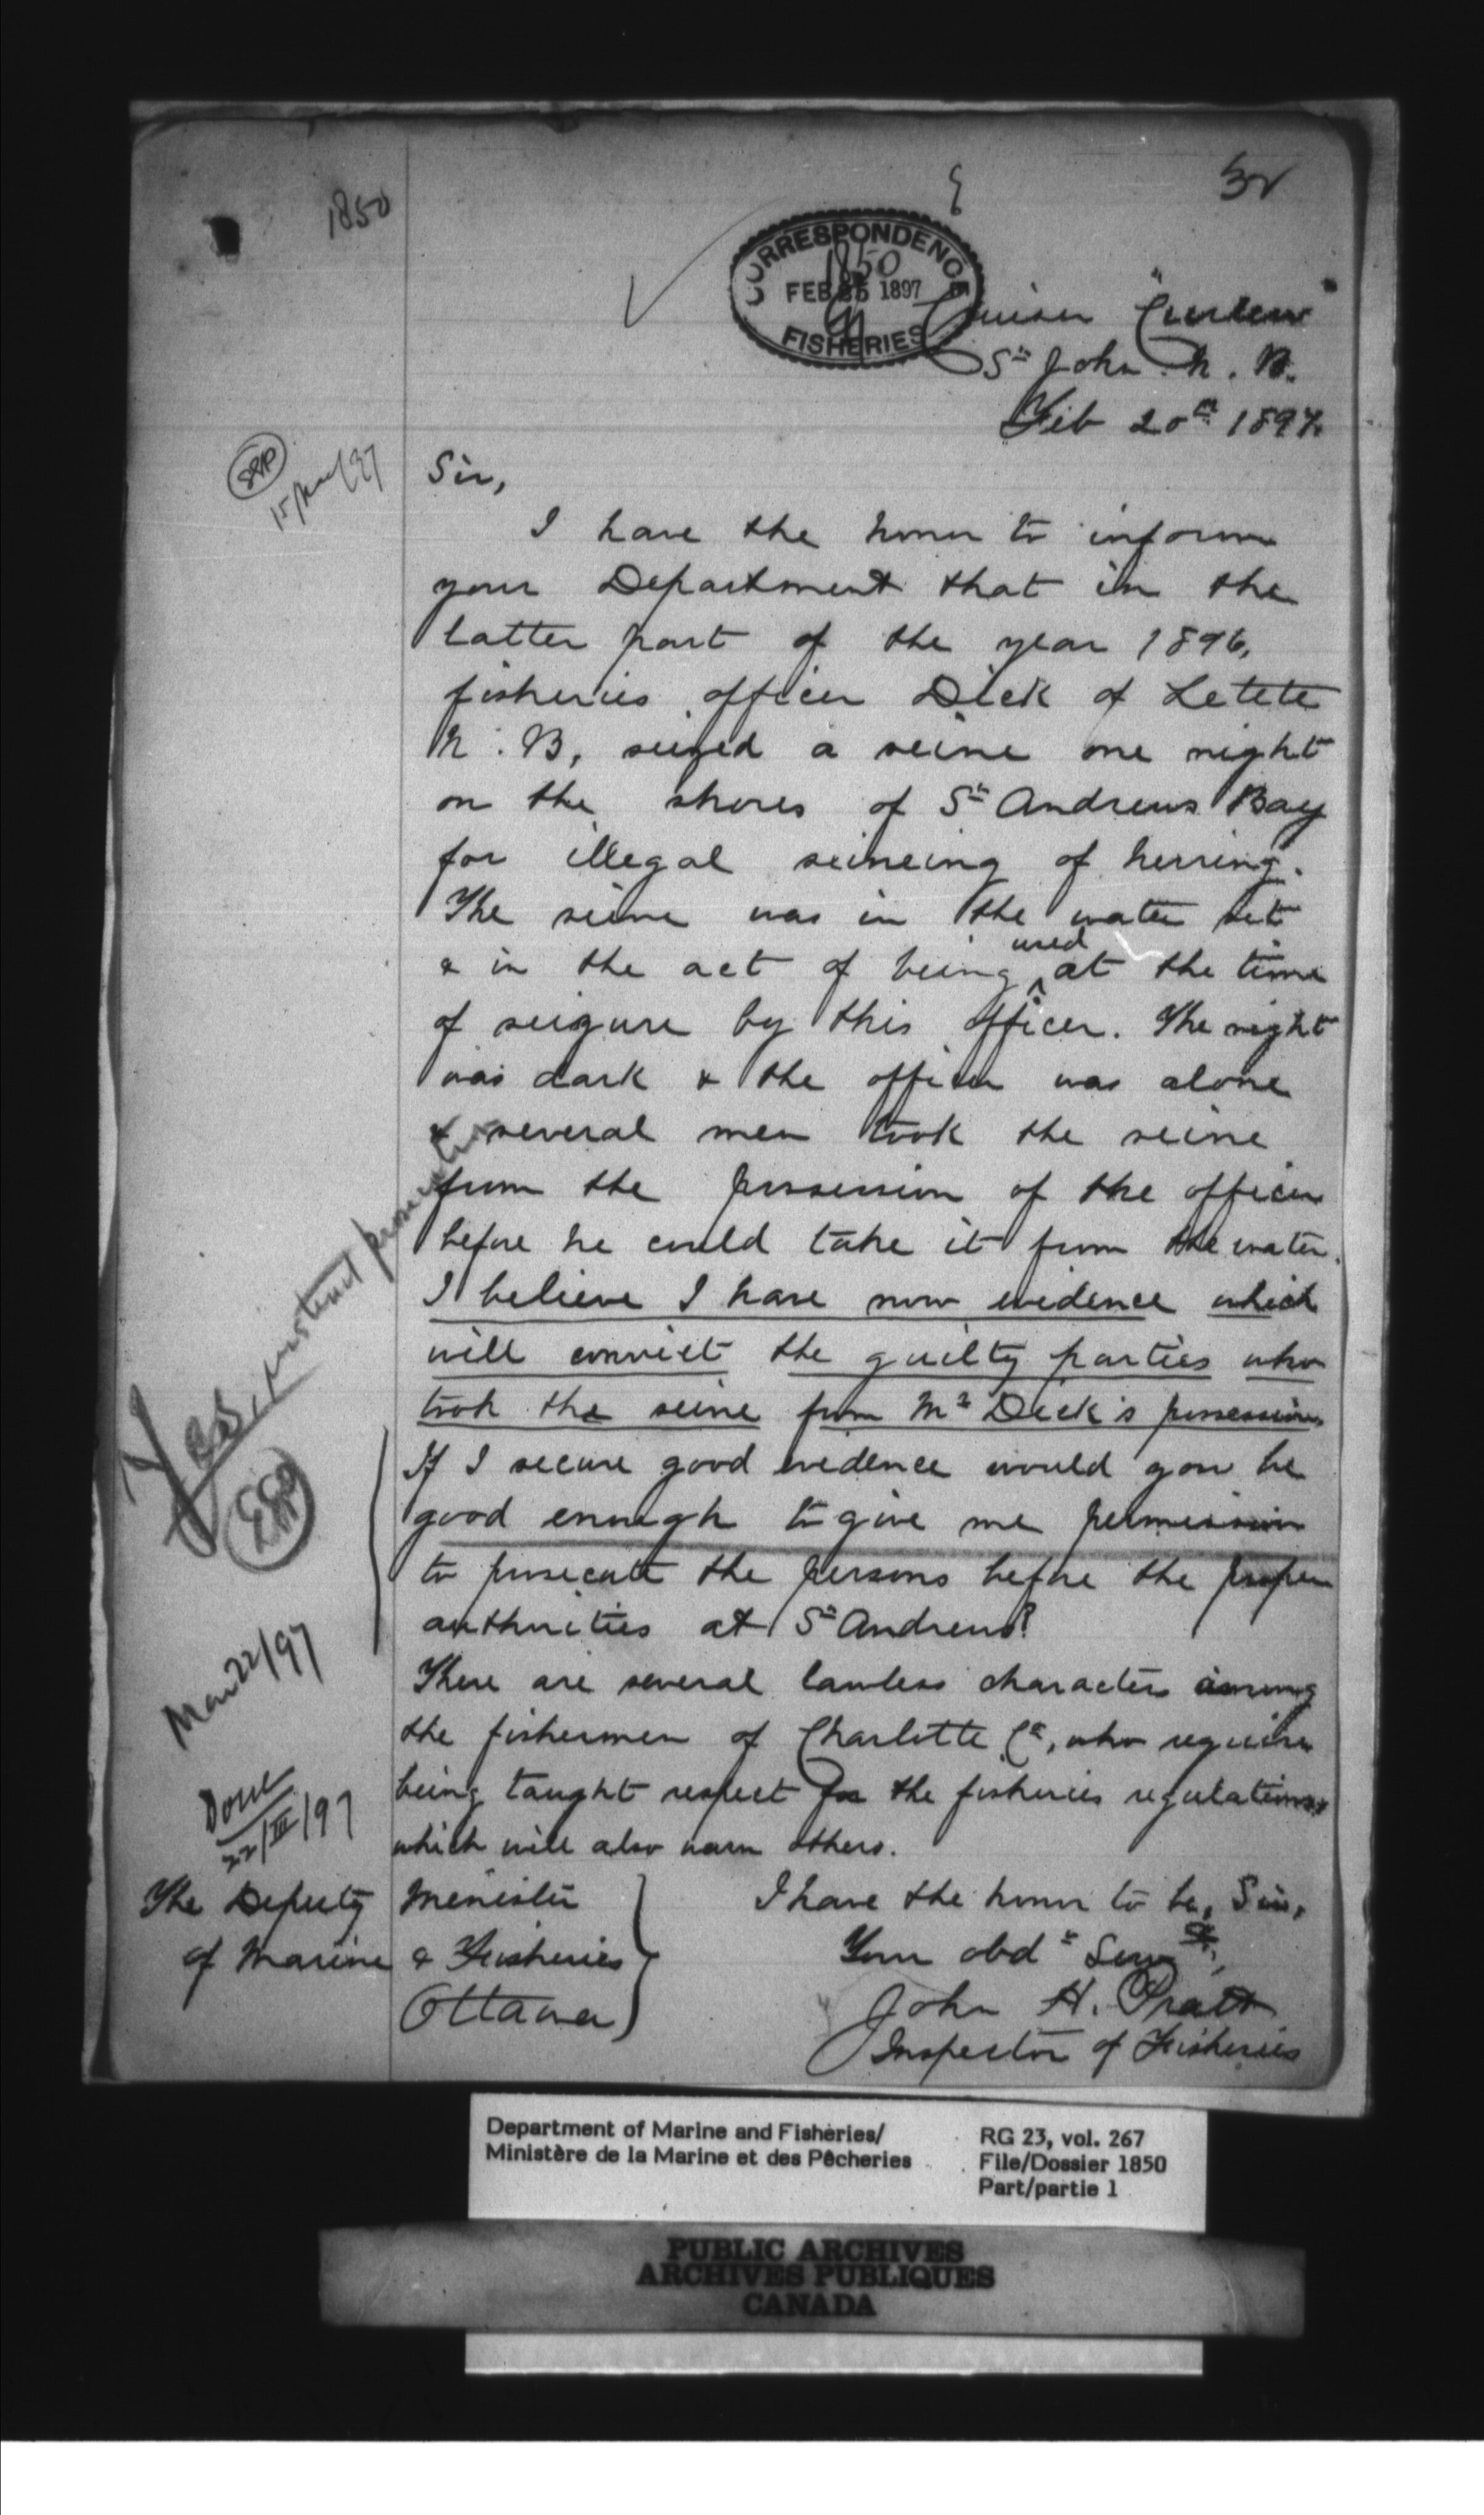 1850
32
CORRESPONDENCE
1850
FEB 25 1897
FISHERIES
Cruiser "Curlew"
St John. N. B.
Feb 20th 1897.
15/Mar/97
Sir,
I have the honor to inform
your Department that in the
latter part of the year 1896,
fisheries officer Dick of Letete
N. B, seized a seine one night
on the shores of St Andrews Bay
for illegal seineing of herring.
The seine was in the water set
& in the act of being used at the time
of seizure by this officer. The night
was dark & the officer was alone
& several men took the seine
from the possession of the officer
before he could take it from the water.
I believe I have now evidence which
will convict the guilty parties who
took the seine from Mr Dick's possession
If I secure good evidence would you be
good enough to give me permission
to prosecute the persons before the proper
authorities at St Andrews?
There are several lawless characters among
the fishermen of Charlotte Co, who require
being taught respect for the fisheries regulations
which will also warn others.
Yes, instruct prosecution
Mar 22/97
Done
22/III/97
The Deputy Minister
of Marine & Fisheries
Ottawa
I have the honor to be, Sir,
Your obdt Servt,
John H. Pratt
Inspector of Fisheries
Department of Marine and Fisheries/
Ministère de la Marine et des Pêcheries
RG 23, vol. 267
File/Dossier 1850
Part/partie 1
PUBLIC ARCHIVES
ARCHIVES PUBLIQUES
CANADA